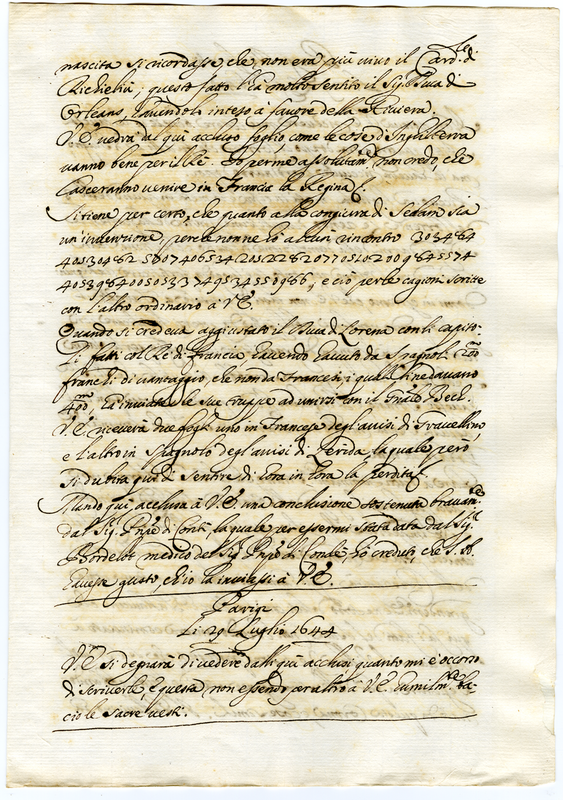 nascita si ricordasse che, non era più vivo il Card.le di
Richelieù, questo fatto l'ha molto sentito il Sig.r Duca di
Orleans, havendolo inteso à favore della Riviera.
V.E. vedrà dal qui accluso foglio come le cose d'Inghilterra
vanno bene per il Rè. Io per me assolutam.te non credo, che
lasceranno venire in Francia la Regina.
Si tiene per certo, che quanto alla congiura di Sedan sia
un'invenzione, perche non ne hò alcun rincontro 303484
e ciò per le cagioni scritte
con l'altro ordinario à V.E.
Quando si credeva aggiustato il Duca di Lorena con li capito-
li fatti col Rè di Francia havendo havuto da Spagnoli 200m
franchi di vantaggio, che non da Francesi, i quali line davano
400m, ha inviate le sue truppe ad unirsi con il Gnāle Bech.
V.E. riceverà due fogli uno in Francese degl'avvisi di
e l'altro in Spagnolo degl'avvisi di Lerida, la quale però
si dubita qui di sentire di hora in hora la perdita.
Mando qui acclusa à V.E. una conclusione sostenuta bravam.te
dal Sig.r Pnpe di Contì, la quale per essermi stata data dal Sig.r
Bordelot medico del Sig.r Pnpe di Condè, hò creduto, che S.A.
havesse gusto ch'io la inviassi à V.E.
Parigi
Li 29 Luglio 1644
V.E. si degnarà di vedere dalli quì acclusi quanto mi è occorso
di scriverle, e questa non essendo per altro à V.E. humilm.te ba-
cio le sacre vesti.